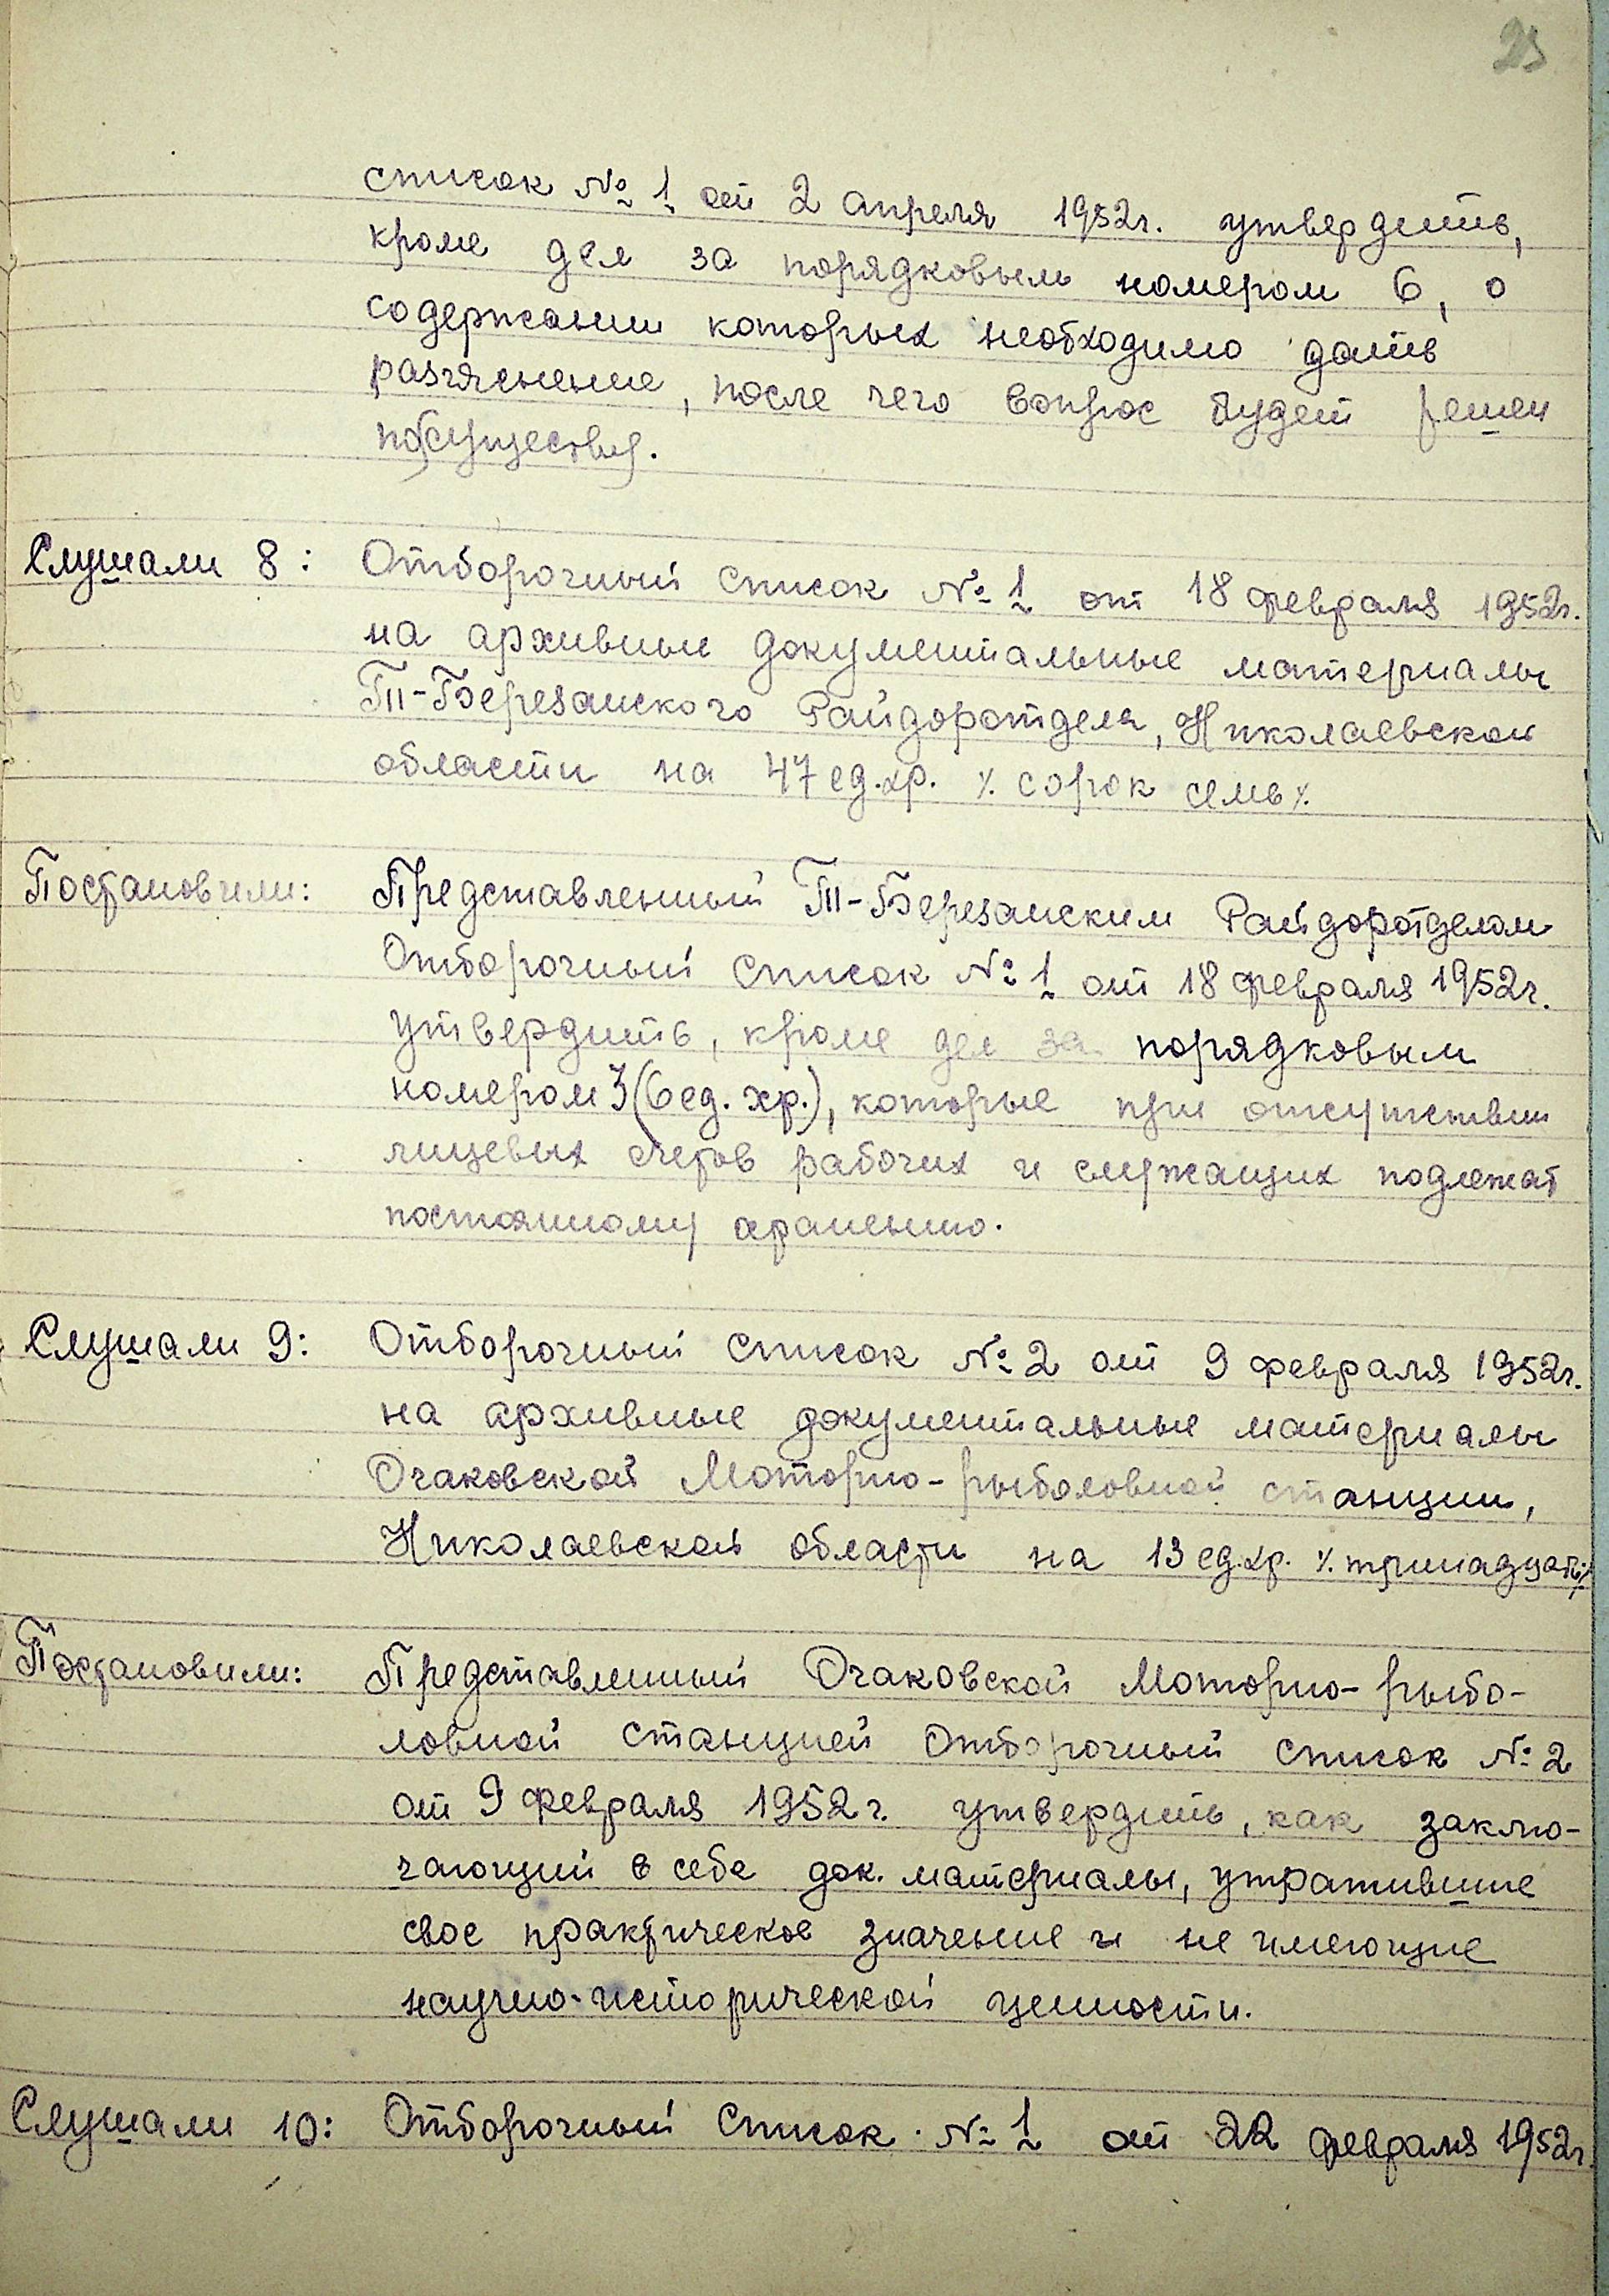 25
список № 1 от 2 апреля 1952г. утвердить,
кроме дел за порядковым номером 6, о
содержании которых необходимо дать
разъяснение, после чего вопрос будет решен
по существу.
Слушали 8: Отборочный список № 1 от 18 февраля 1952г.
на архивные документальные материалы
Т-Березанского Райдоротдела, Николаевской
области на 47 ед.хр. ٪ сорок семь ٪
Постановили: Представленный Т-Березанским Райдоротделом
Отборочный список № 1 от 18 февраля 1952г.
утвердить, кроме дел за порядковым
номером 3 (6 ед. хр.), которые при отсутствии
лицевых счетов рабочих и служащих подлежат
постоянному хранению.
Слушали 9: Отборочный список № 2 от 9 февраля 1952г.
на архивные документальные материалы
Очаковской Моторно-рыболовной станции,
Николаевской области на 13 ед.хр. ٪ тринадцать ٪
Постановили: Представленный Очаковской Моторно-рыбо-
ловной станцией Отборочный список № 2
от 9 февраля 1952 г. утвердить, как заклю-
чающий в себе док. материалы, утратившие
свое практическое значение и не имеющие
научно-исторической ценности.
Слушали 10: Отборочный список № 1 от 22 февраля 1952г.